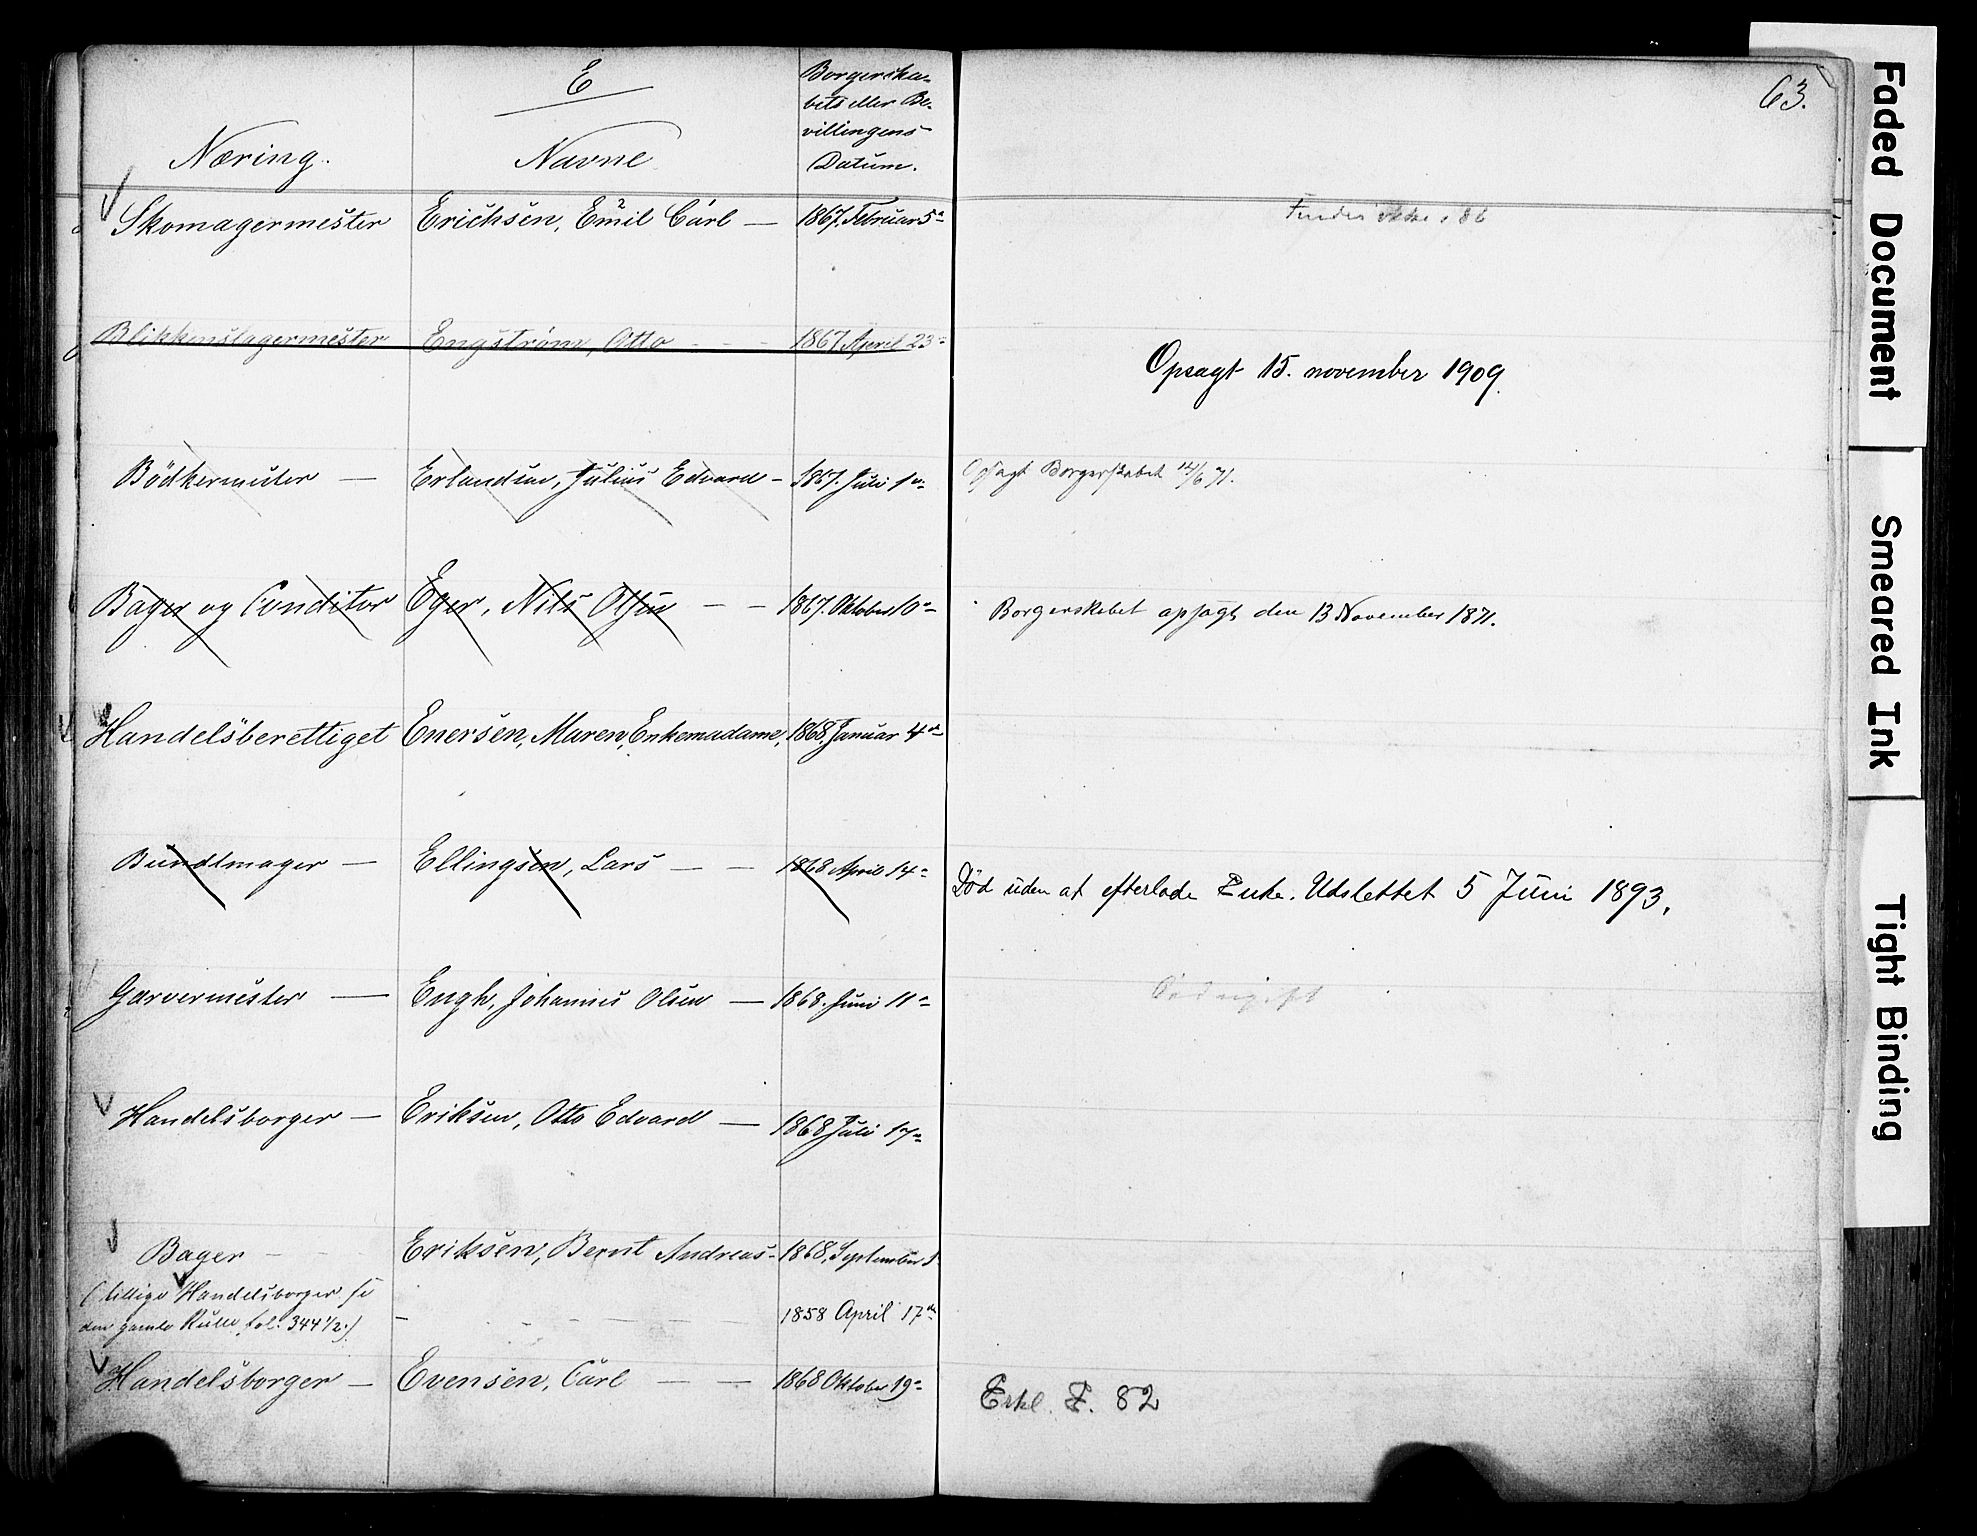 E
63.
Næring.
Navne
Borgerska-
bets eller Be-
villingens
Datum.
Skomagermester Erichsen, Emil Carl — 1867. Februar 5
Findes ikke i 86
Blikkenslagermester Engström, Otto - - - 1867 April 23
Opsagt 15. november 1909.
Bödkermester — Erlandsen, Julius Edvard - 1867. Juli 1
Opsagt Borgerskabet 12/6 71.
Bager og Conditor Eger, Nils Olsen - - 1867. Oktober 10
Borgerskebet opsagt den 13 November 1871.
Handelsberettiget Enersen, Maren, Enkemadame, 1868, Januar 4
Bundtmager — Ellingsen, Lars — — 1868 April 14
Död uden at efterlade Enke. Udslettet 5 Juni 1893.
Garvermester — Engh, Johannes Olsen — 1868. Juni 11
Handelsborger — Eriksen, Otto Edvard — 1868 Juli 17
Bager - - Eriksen, Bernt Andreas - 1868, September
(tillige Handelsborger se
den gamle Rulle fol. 344 1/2.) - - - - - 1858 April 17de
Handelsborger — Evensen, Carl — — 1868 Oktober 19
Erkl. F. 82
Faded Document
Smeared Ink
Tight Binding